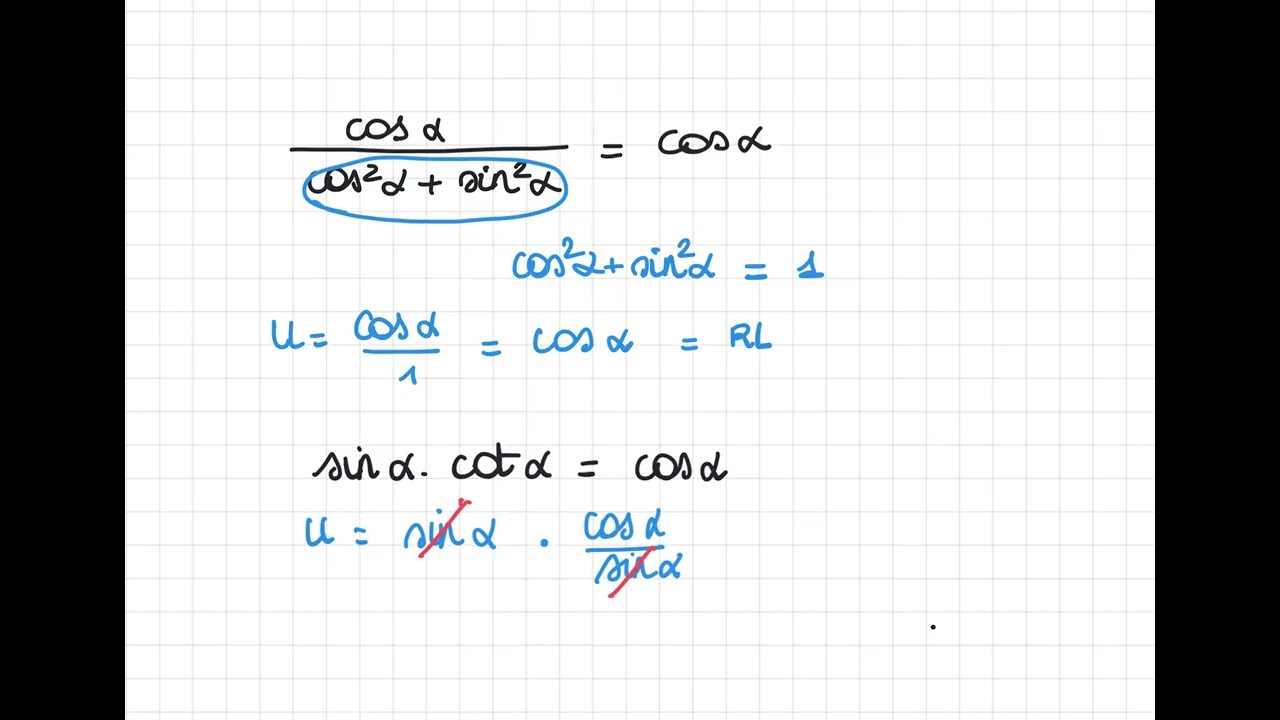 cos α / cos²α + sin²α = cos α
cos²α + sin²α = 1
LL = cos α / 1 = cos α = RL
sin α · cot α = cos α
LL = sin α · cos α / sin α